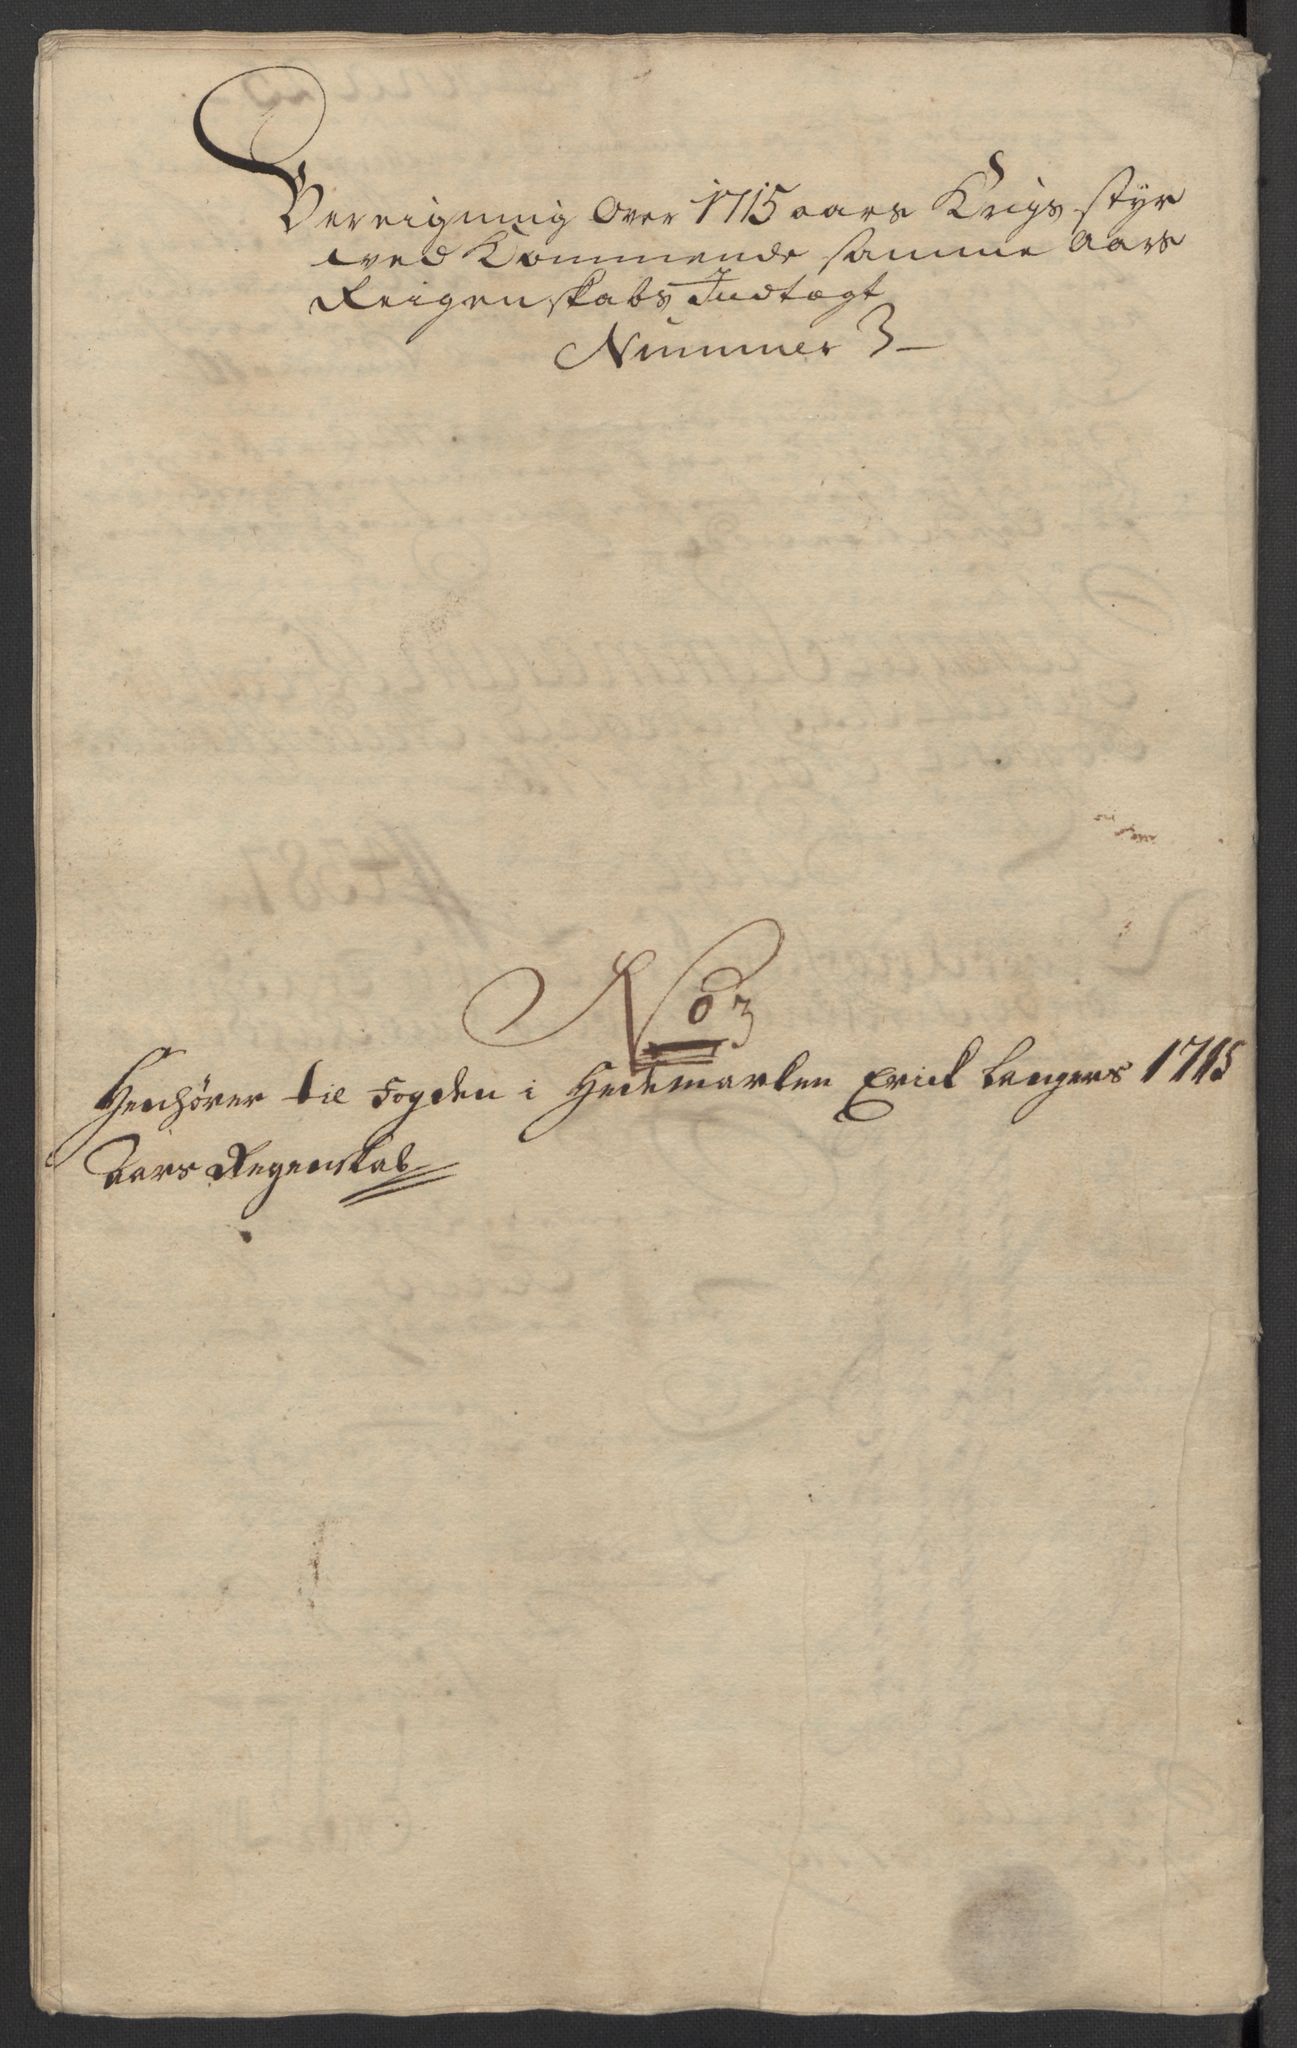 Bereigning Over 1715 aars Krigs styr
wed Kommende samme Aars
Reigenskabs Indtægt
Nummer 3
No 3
Henhörer til Fogden i Hedemarken Erick Langers 1715
Aars Regenskab